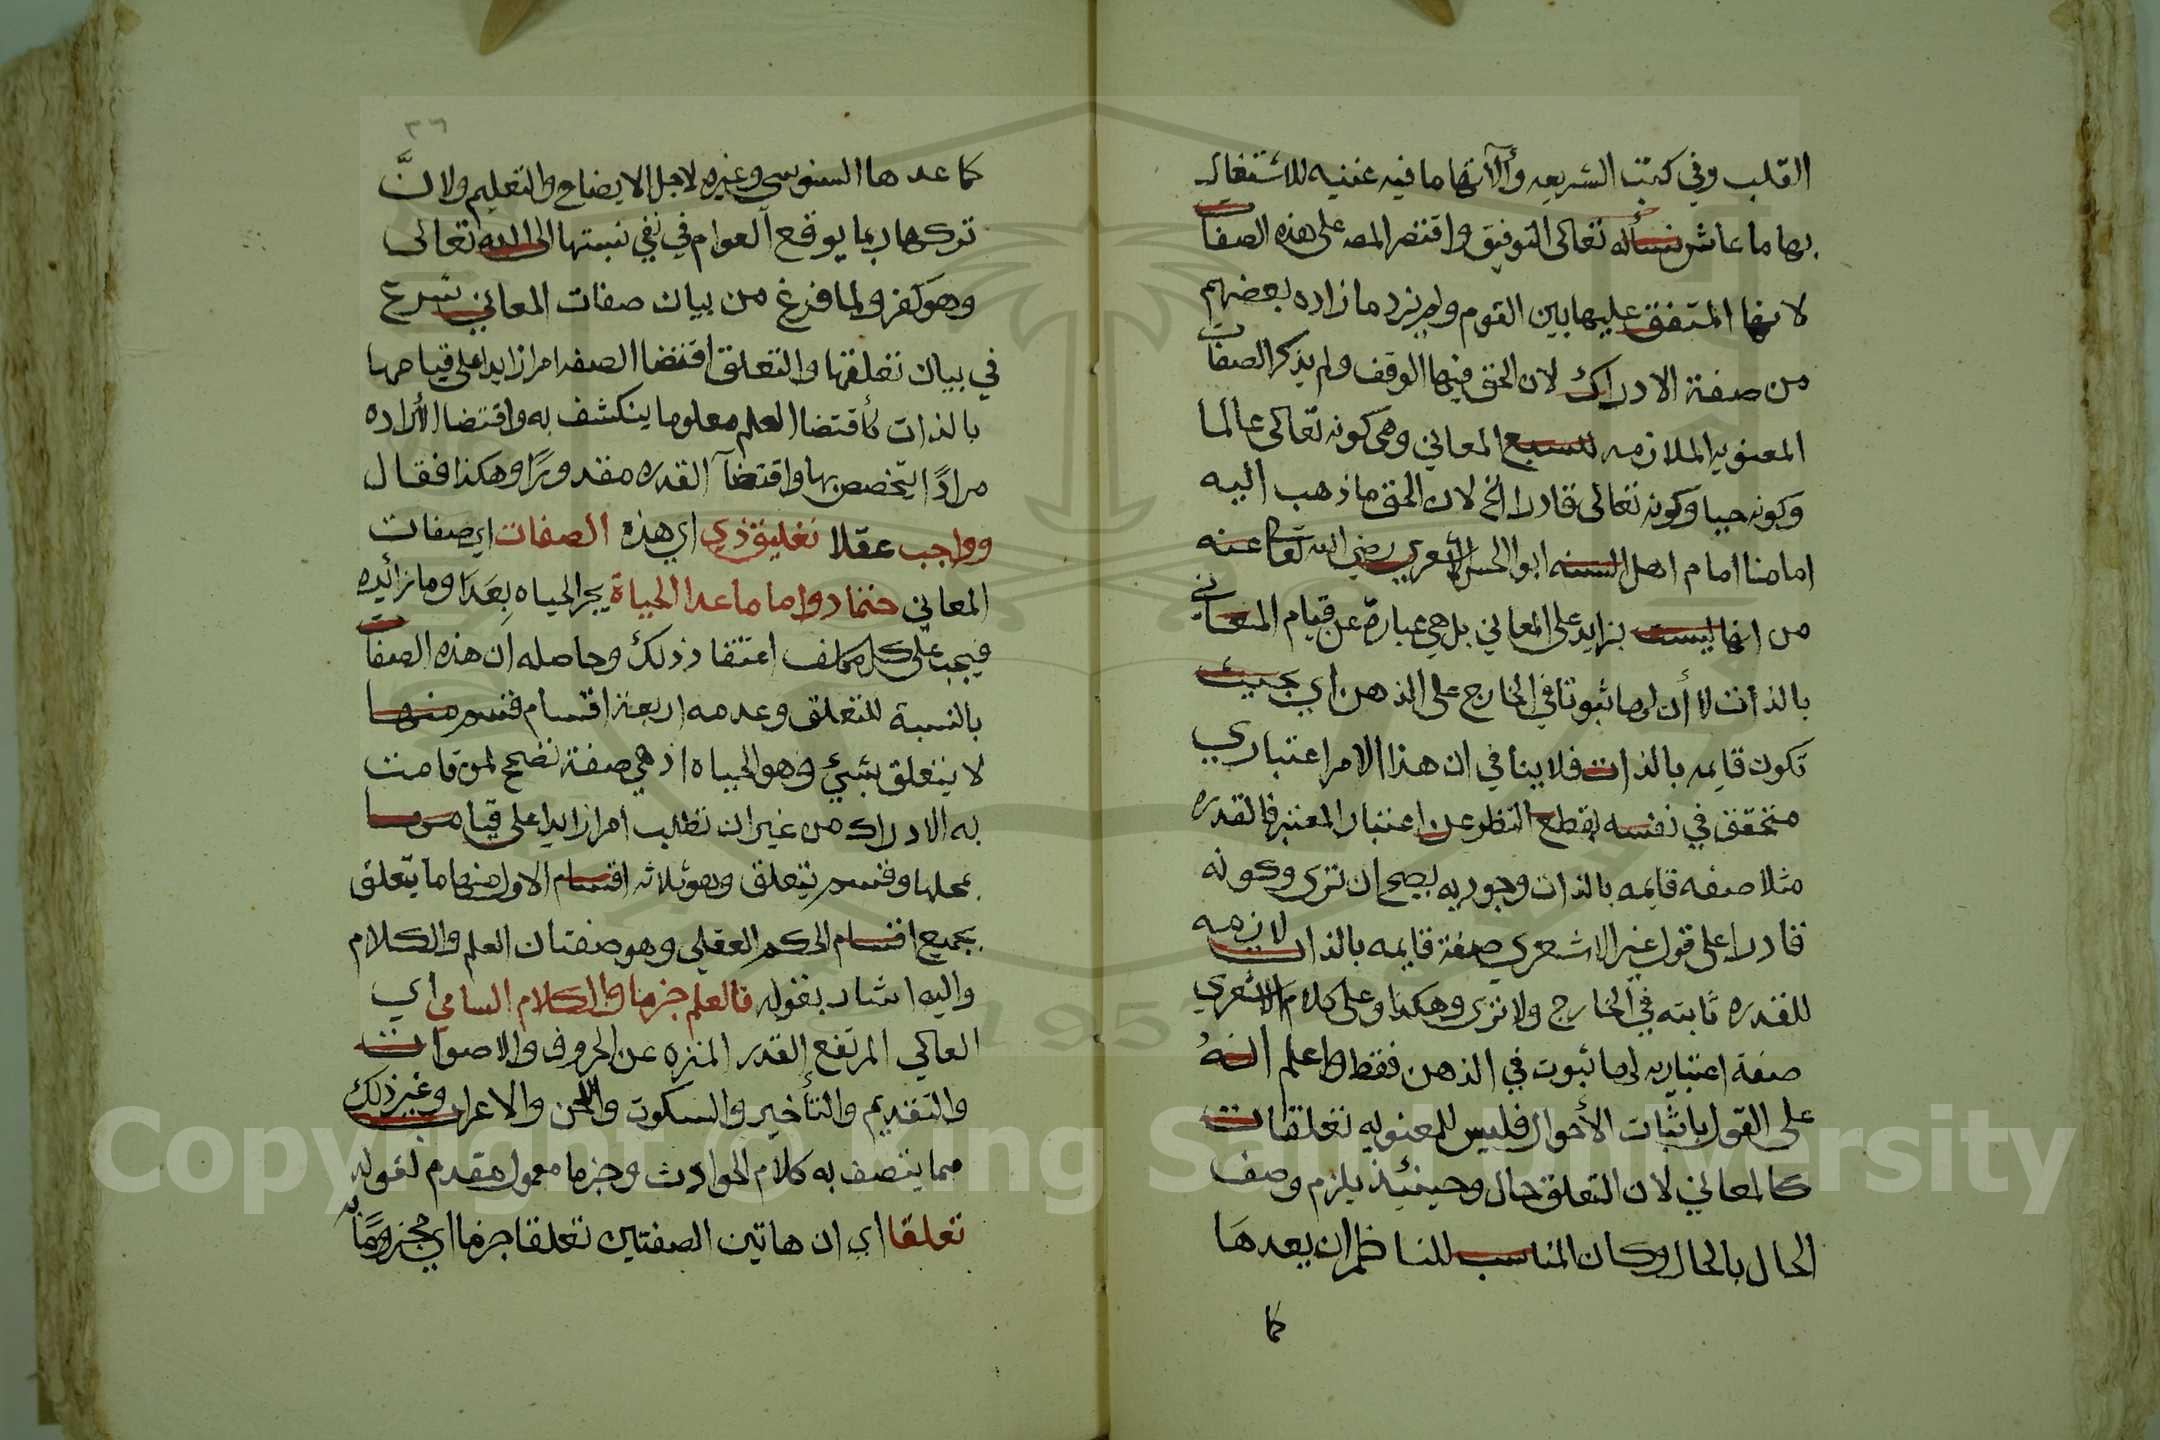 القلب وفي كتب الشريعه وآلاتها ما فيه غنيه للاشتغال
بها ما عاش نسأله تعالى التوفيق واقتصر المصـ على هذه الصفات
لانها المتفق عليها بين القوم ولم يزد ما زاده بعضهم
من صفة الادراك لان الحق فيها الوقف ولم يذكر الصفات
المعنويه الملازمه للسبع المعاني وهي كونه تعالى عالما
وكونه حيا وكونه تعالى قادرا الخ لان الحق ما ذهب اليه
امامنا امام اهل السنه ابو الحسن الاشعري رضي الله تعالى عنه
من انها ليست بزايد على المعاني بل هي عبارة عن قيام المعاني
بالذات لا أن لها ثبوتا في الخارج على الذهن اي بحيث
تكون قايمه بالذات فلا ينافي ان هذا الامر اعتباري
متحقق في نفسه بقطع النظر عن اعتبار المعتبر فالقدره
مثلا صفه قايمه بالذات وجوديه يصح ان ترى وكونه
قادرا على قول غير الاشعري صفة قايمه بالذات لازمه
للقدره ثابته في الخارج ولا ترى وهكذا وعلى كلام الاشعري
صفة اعتباريه لها ثبوت في الذهن فقط واعلم انه
على القول باثبات الأحوال فليس للمعنويه تعلقات
كالمعاني لان التعلق حال وحينئذ يلزم وصف
الحال بالحال وكان المناسب للناظم ان يعدها
كما
٣٦
كما عدها السنوسي وغيره لاجل الايضاح والتعليم ولانَّ
تركها ربما يوقع العوام في نفي نسبتها الى الله تعالى
وهو كفر ولما فرغ من بيان صفات المعاني شرع
في بيان تعلقها والتعلق اقتضا الصفه امرا زايدا على قيامها
بالذات كأقتضا العلم معلوما ينكشف به واقتضا الأراده
مرادًا يتخصص بها واقتضآ القدره مقدورًا وهكذا فقال
وواجب عقلا تعليق ذي اي هذه الصفات اي صفات
المعاني حتما دواما ما عدا الحياة بجر الحياه بِعَدَا وما زائده
فيجب على كل مكلف اعتقاد ذلك وحاصله ان هذه الصفات
بالنسبة للتعلق وعدمه اربعة اقسام قسم منها
لا يتعلق بشيئ وهو الحياه اذ هي صفة تصحح لمن قامت
به الادراك من غير ان تطلب امرا زايدا على قيامها
بمحلها وقسم يتعلق وهو ثلاثه اقسام الاول منها ما يتعلق
بجميع اقسام الحكم العقلي وهو صفتان العلم والكلام
واليه اشار بقوله فالعلم جزما والكلام السامي اي
العالي المرتفع القدر المنزه عن الحروف والاصوات
والتقديم والتأخير والسكوت واللحن والاعراب وغير ذلك
مما يتصف به كلام الحوادث وجزما معمول مقدم لقوله
تعلقا اي ان هاتين الصفتين تعلقا جزما اي مجزومًا به